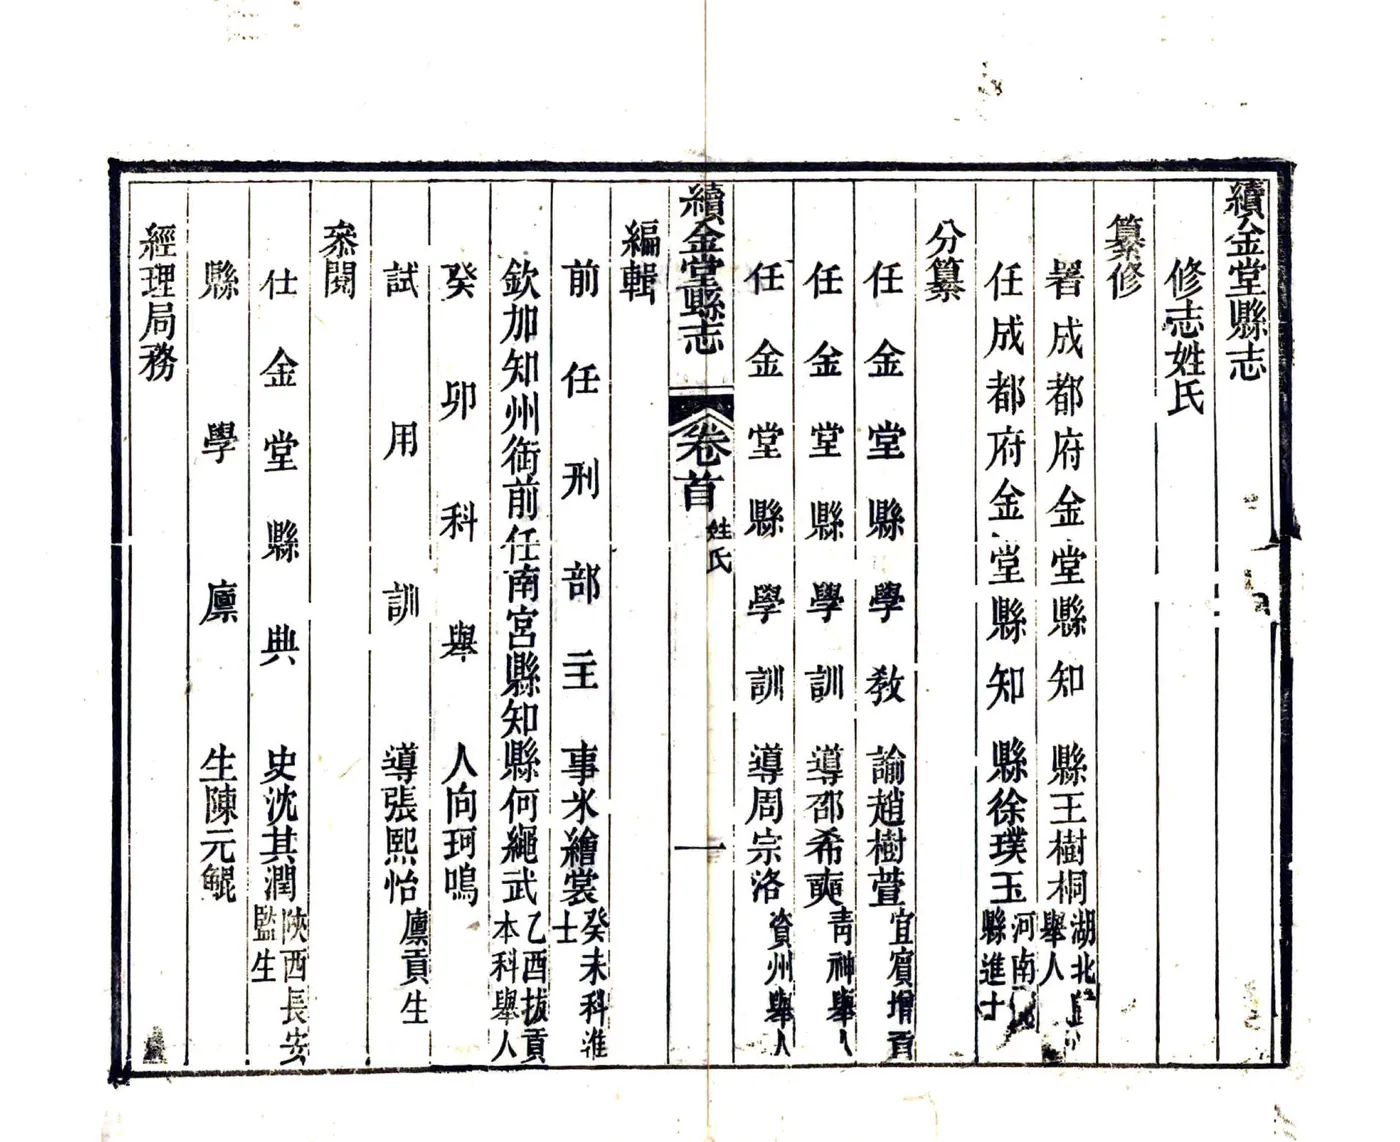 續金堂縣志
修志姓氏
纂修
署成都府金堂縣知縣王樹桐湖北舉人
任成都府金堂縣知縣徐璞玉河南縣進士
分纂
任金堂縣學教諭趙樹萱宜賓增貢
任金堂縣學訓導邵希奭青神舉人
任金堂縣學訓導周宗洛資州舉人
續金堂縣志 卷首 姓氏 一
編輯
前任刑部主事米繪裳癸未科進士
欽加知州銜前任南宮縣知縣何繩武乙酉拔貢本科舉人
癸卯科舉人向珂鳴
試用訓導張熙怡廩貢生
叅閱
任金堂縣典史沈其潤陝西長安監生
縣學廩生陳元鯤
經理局務